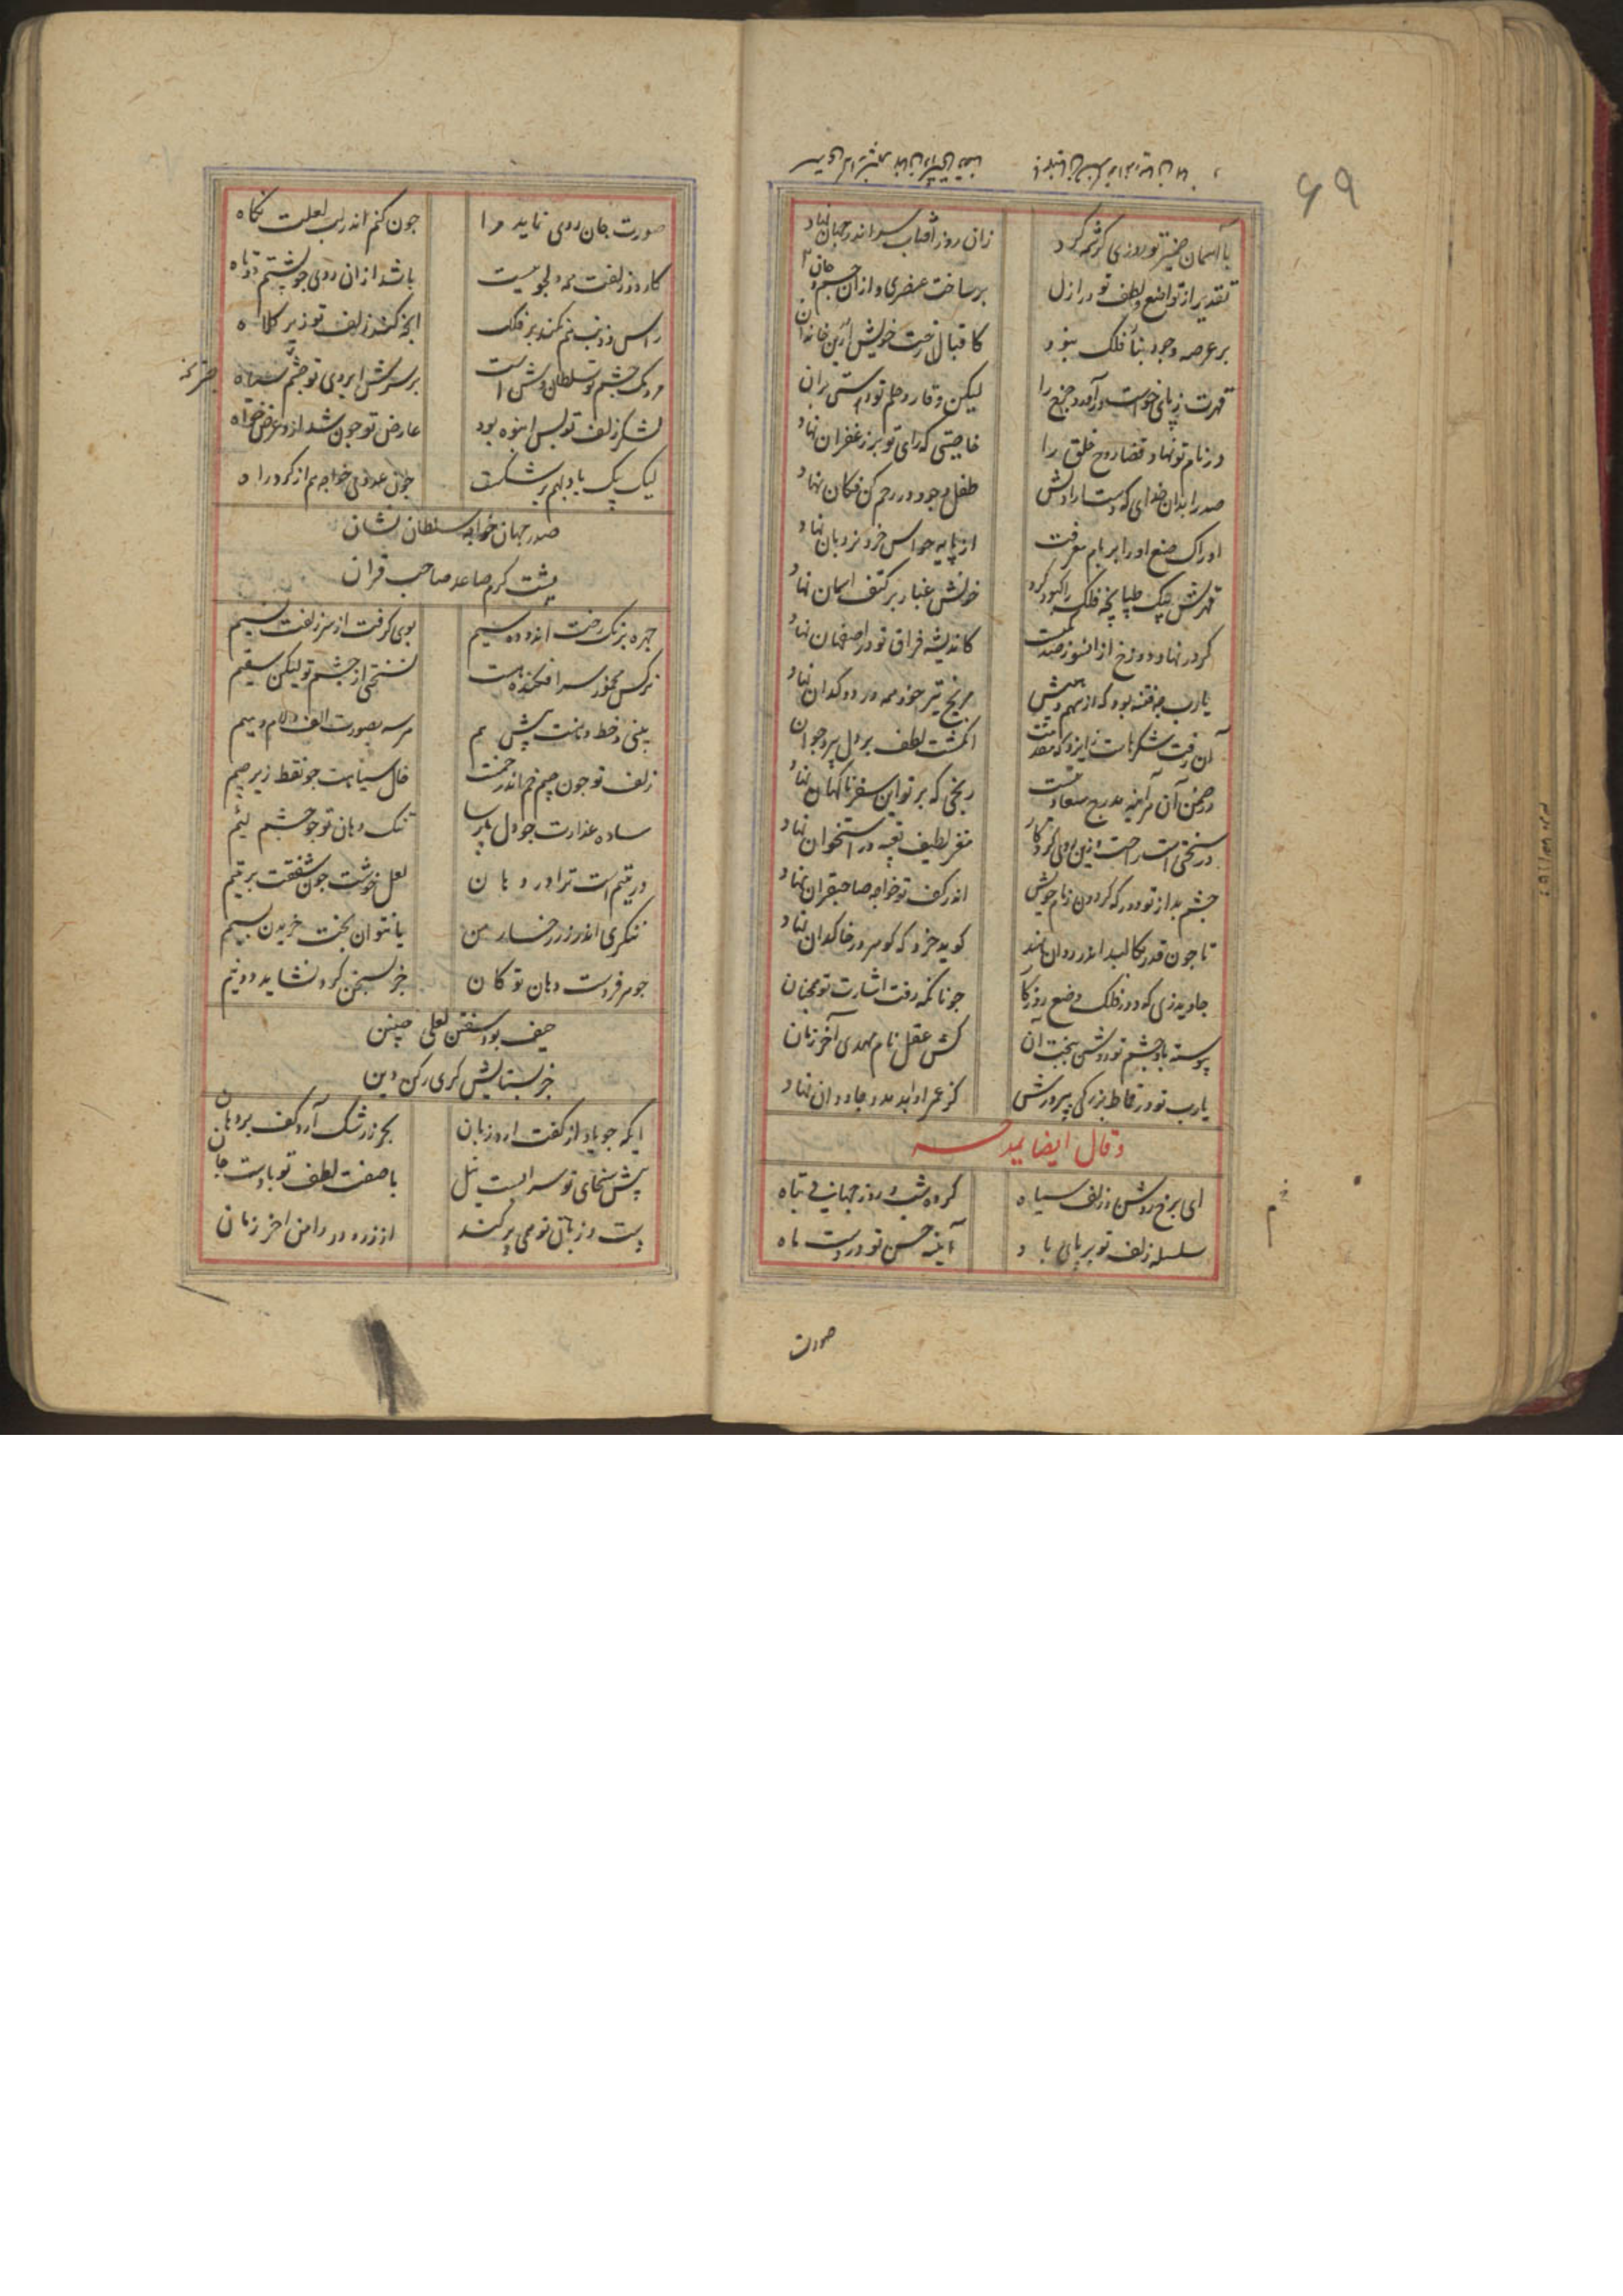 ۶۹
با آسمان ضمیر تو روزی کرشمه کرد زان روز آفتاب سر اندر جهان نهاد
تقدیر از تواضع و لطف تو در ازل بر ساخت عنصری و از آن جسم و جان
بر عرصه وجود بنا فلک نبود کاقبال رخت خویش درین خانه
قهرت ز پای خواست در آورد چرخ را لیکن وقار و حلم تو دستی بران
در نام تو نهاد قضا روح خلق را خاصیتی که رای تو بر زعفران نهاد
صدرا بدان خدای که دست ارادتش طفل وجود در رحم کن فکان نهاد
ادراک صنع او را بر بام معرفت از پایه حواس خرد نردبان نهاد
قهرش بیک طپانچه فلک را کبود کرد خونش غبار بر کتف آسمان نهاد
کردر نهاد دوزخ از آن سوز صعبت کاندیشه فراق تو در اصفهان نهاد
یارب چه فتنه بود که از سهم مریخ تیر خود همه در دوکدان نهاد
آن رفت انگشت لطف بر دل پیر و جوان
در ضمن آن هر آینه مدرج سعادتست رنجی که بر تو این سفر ناگهان نهاد
در سختی است راحت و زین روی کردگار مغز لطیف تعبیه در استخوان نهاد
چشم بد از تو دور که گردون زمام خویش اندر کف تو خواجه صاحبقران نهاد
تا چون قدر کالبد اندر روان گوید خرد که گوهر در خاکدان نهاد
جاوید زی که دور فلک وضع روزگار چونانکه رفت اشارت تو همچنان
پیوسته باد چشم تو روشن ببخت آن کش عقل نام مهدی آخر زمان
یارب تو در قماط بزرگی بپرورش کز عمر او ابد مدد جاودان نهاد
و قال ایضا یمدحه
ای برخ روشن و زلف سیاه کرده شب و روز جهانی تباه
سلسله زلف تو بر پای باد آینه حسن تو در دست ماه
صورت
صورت جان روی نماید مرا چون کنم اندر لب لعلت نگاه
کار دو زلفت همه دلجوییست باشد از آن روی چو پشتم دوتاه
راس و ذنب نیم کنند بر فلک آنچه کند زلف تو زیر کلاه
مردمک چشم تو سلطان وش است بر سرش ابروی تو چتر سیاه
لشکر زلف تو بس انبوه بود عارض تو چون شد ازو عرض خواه
لیک بیک باد بهم بر شکست چون عدوی خواجه هم از گرد راه
صدر جهان خواجه سلطان نشان
پشت کرم صاعد صاحب قران
چهره برنگ رخت اندوده سیم بوی گرفت از سر زلفت نسیم
نرگس مخمور سرافکنده هست نسختی از چشم تو لیکن سقیم
بینی و خط و دهنت پیش هم هر سه بصورت الف و لام و میم
زلف تو چون جیم خم اندر خمست خال سیاهت چو نقط زیر جیم
ساده عذارت چو دل پارسا تنگ دهان تو چو چشم لئیم
در یتیم است ترا در دهان لعل خوشت چون شفقت بر یتیم
ننگری اندر زر رخسار من یا نتوان بخت خریدن بسیم
جوهر فردست دهان تو کان جز بسخن کرد نشاید دو نیم
حیف بود سفتن لعلی چنین
جز بستایش گری رکن دین
ایکه چو یاد از کفت آرد زبان بحر ز رشک آرد کف بر دهان
پیش سخای تو سرابیست نیل با صفت لطف تو بادست جان
پشت و زبان تو همی پر کنند از زر و در دامن آخر زمان